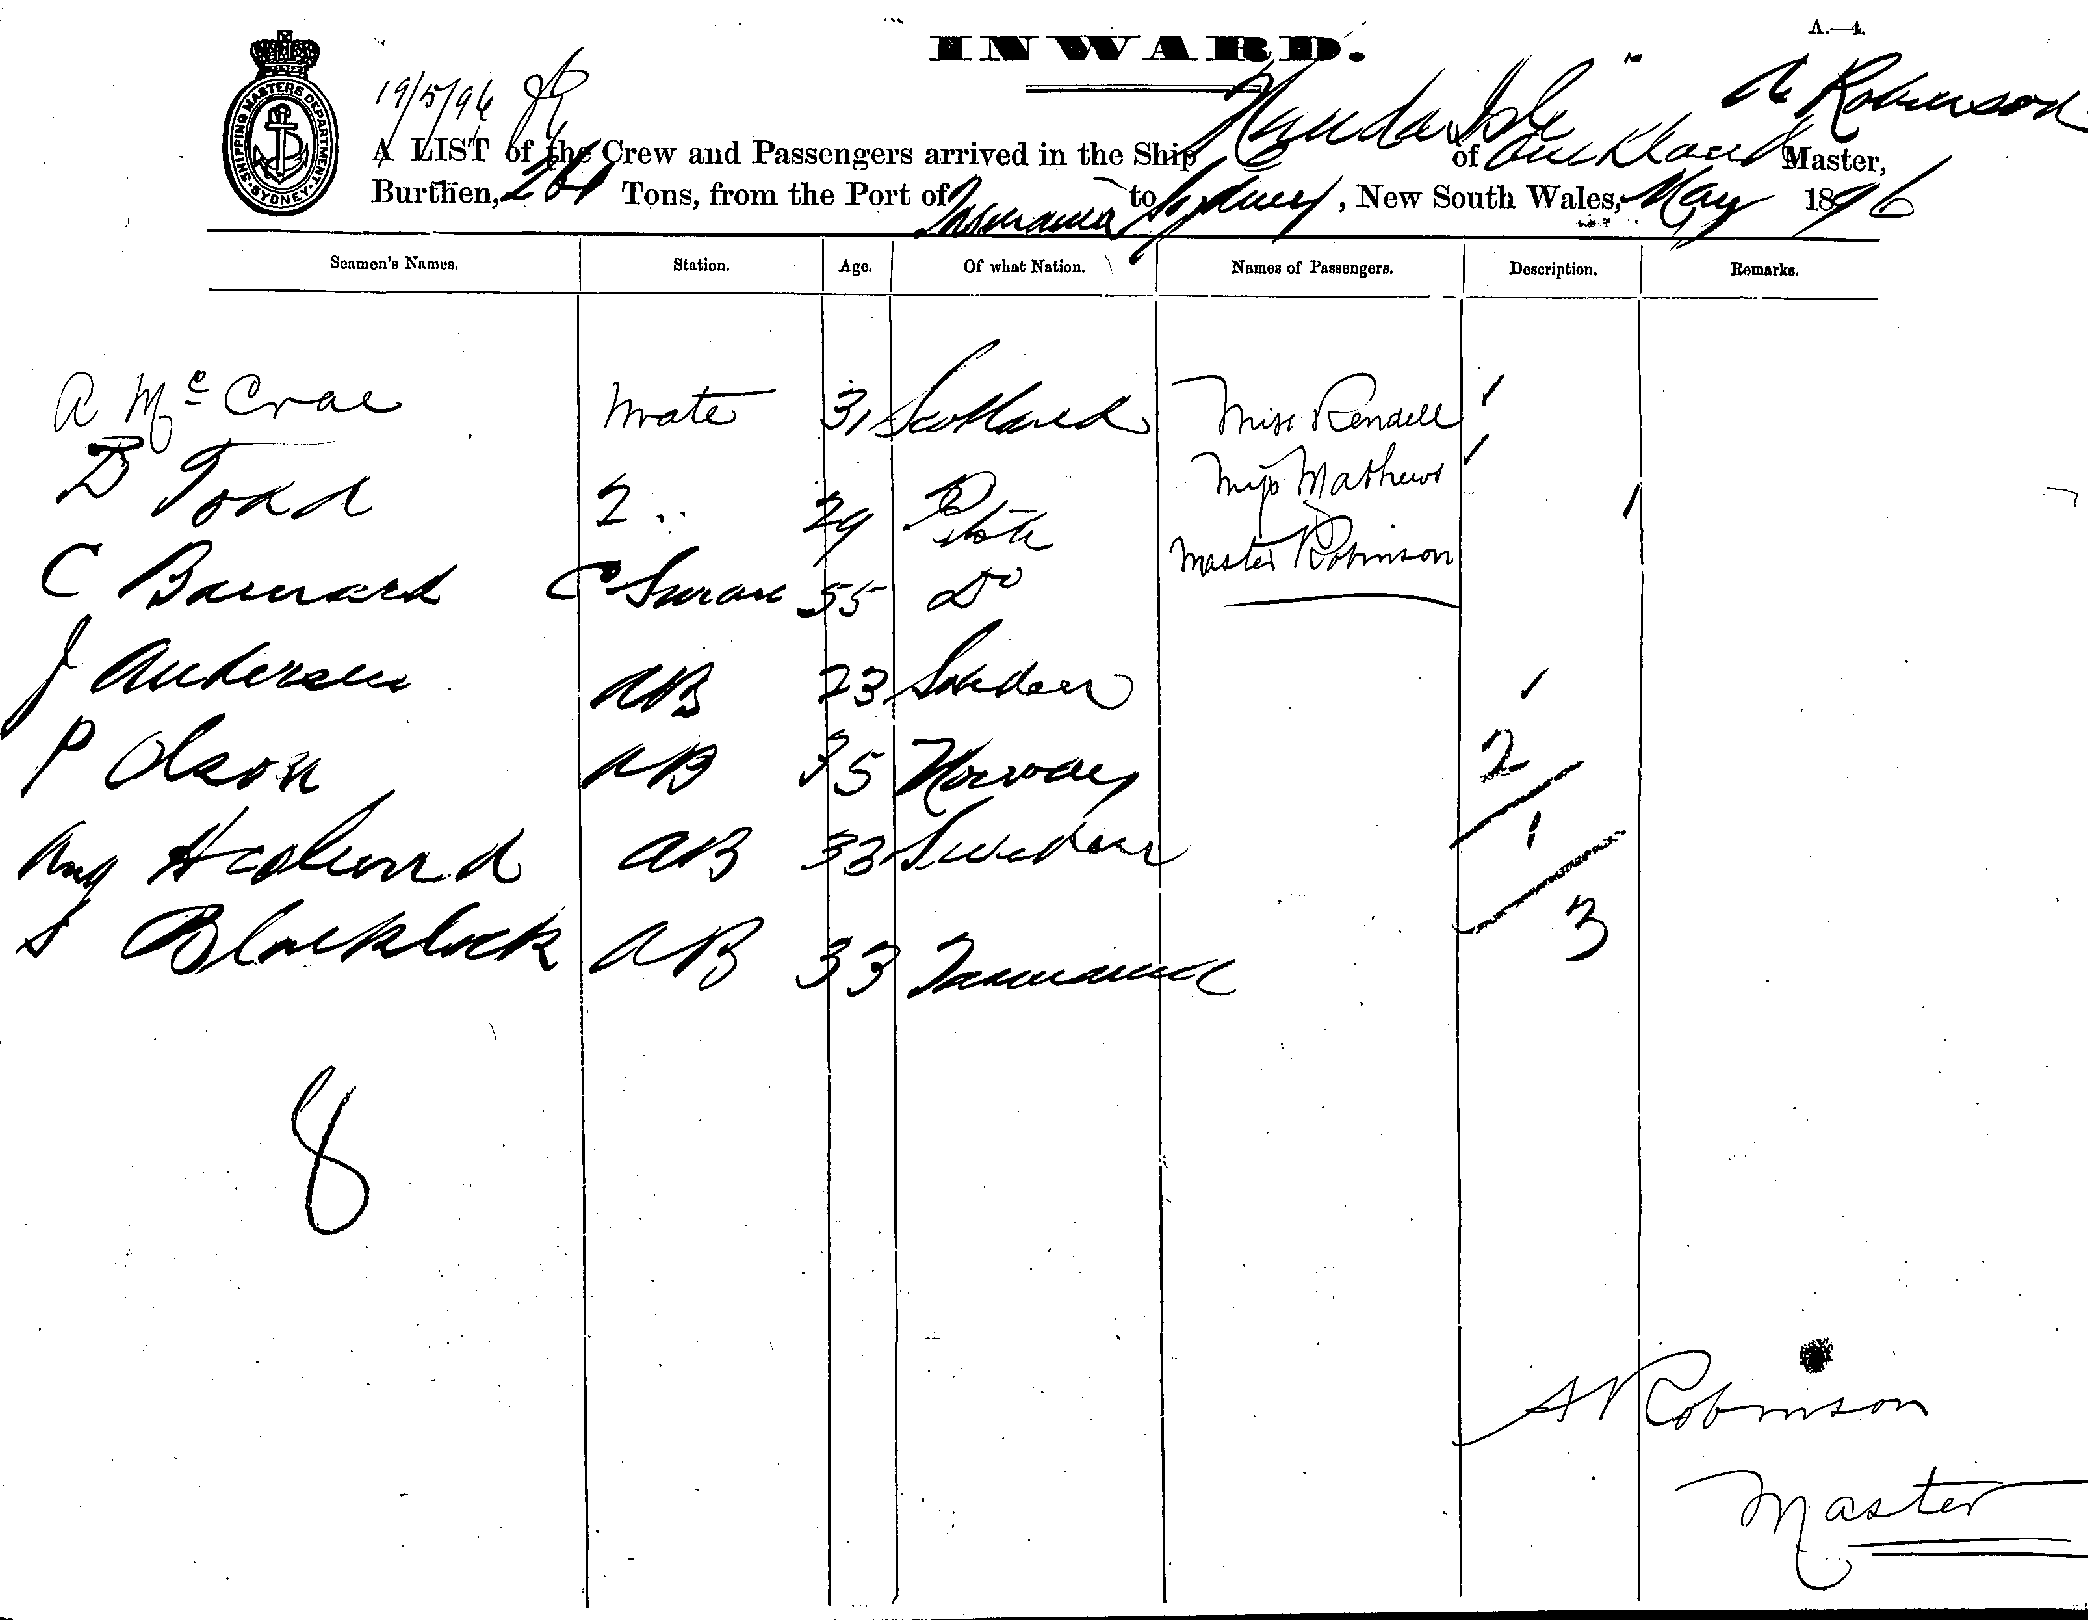 A.—4.
INWARD.
19/5/96
SHIPPING MASTERS DEPARTMENT SYDNEY
A LIST of the Crew and Passengers arrived in the Ship of Auckland A Robinson Master,
Burthen, 261 Tons, from the Port of Tasmania to Sydney, New South Wales, May 1896
Seamen's Names. Station. Age. Of what Nation. Names of Passengers. Description. Remarks.
A Mc Crae Mate 31 Scotland Miss Rendell 1
D Todd 2 .. 29 Miss Mathews 1
C Barnard 55 Do Master Robinson 1
J Andersen AB 23 Sweden 1
P Olson AB 35 Norway 2
Aug AB 33 Sweden 1
S Blacklock AB 33 Tasmania 3
8
A Robinson
Master